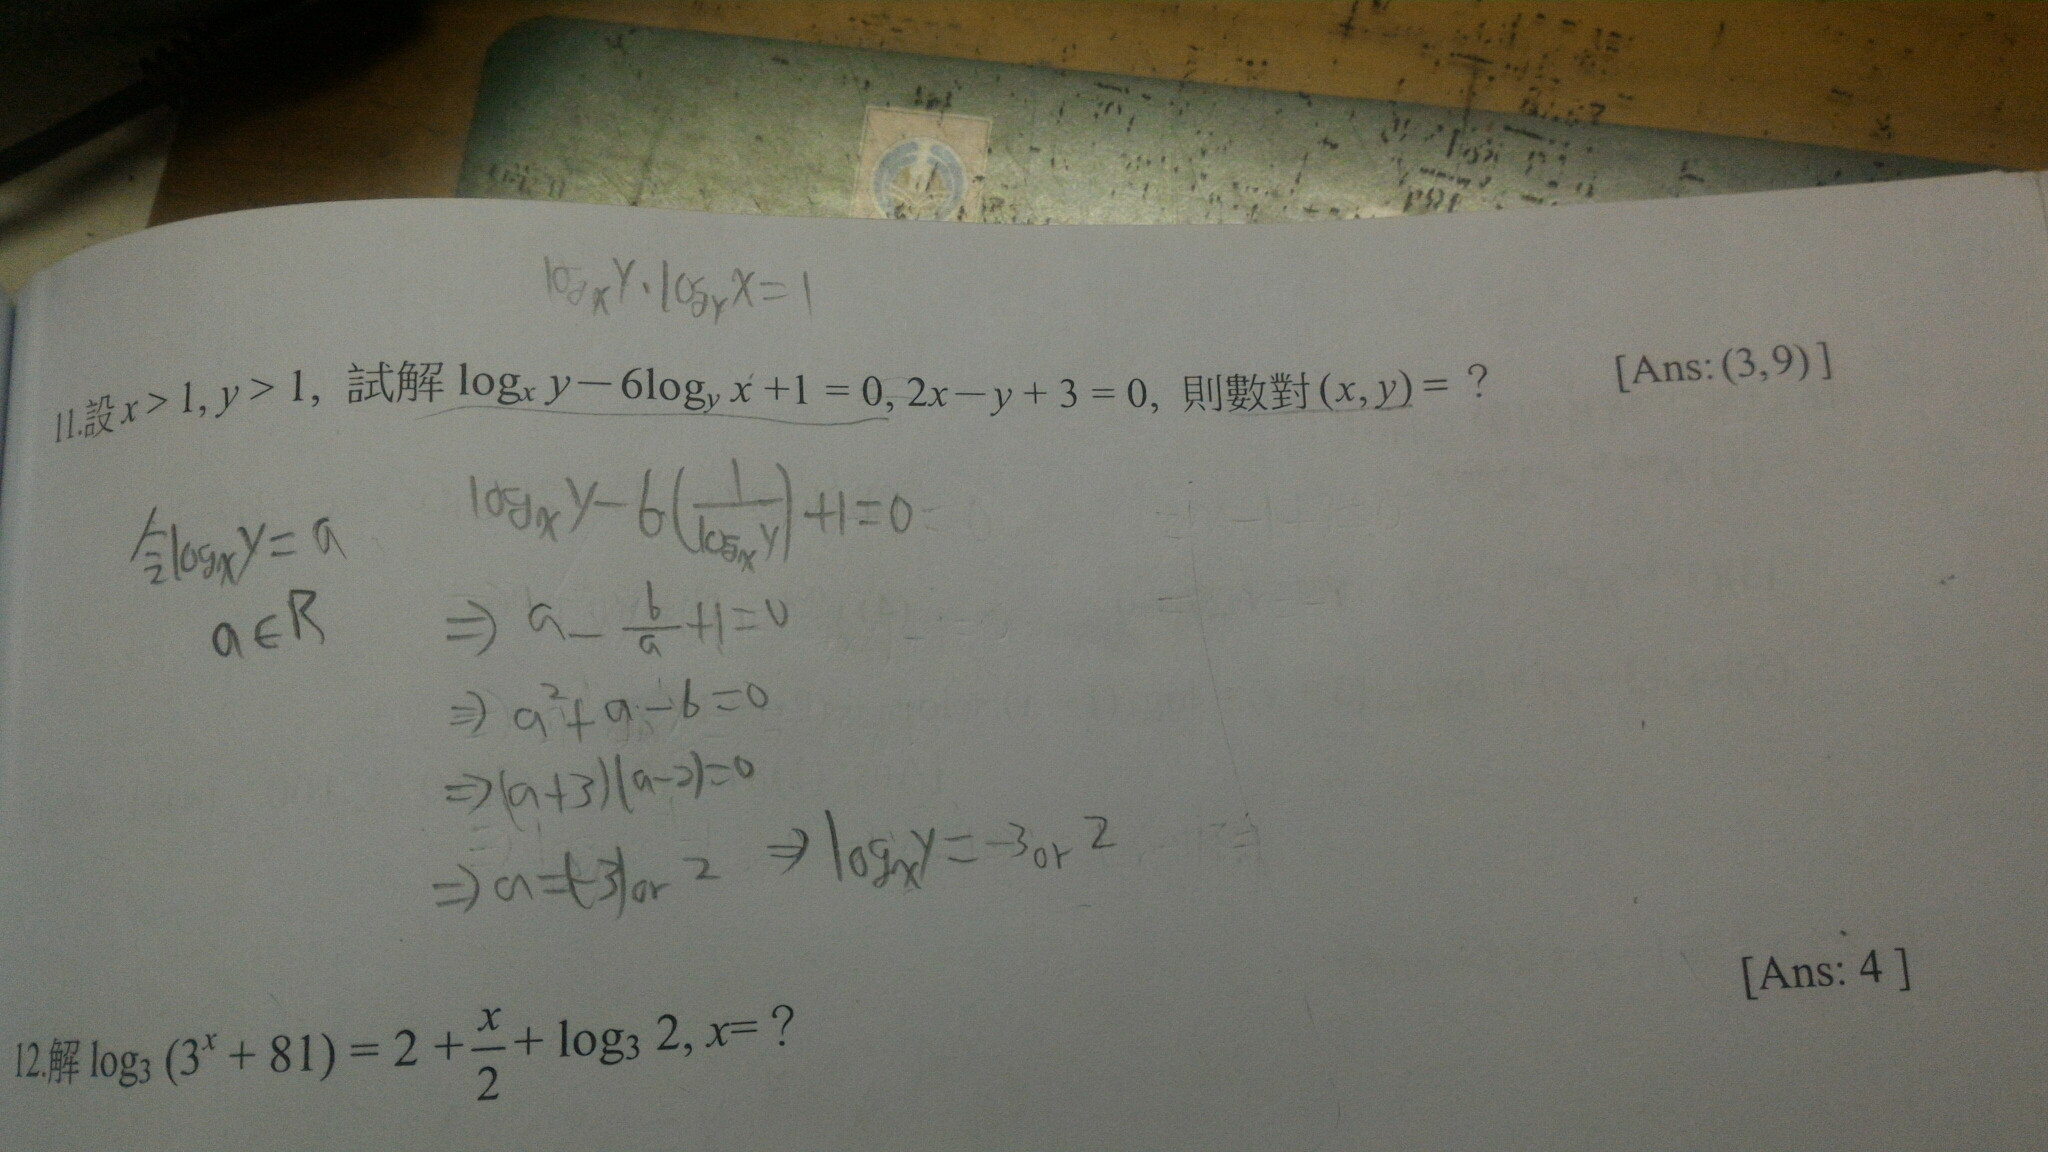 log_x y · log_y x = 1
11.設 x > 1, y > 1, 試解 log_x y − 6log_y x + 1 = 0, 2x − y + 3 = 0, 則數對 (x, y) = ? [Ans: (3,9) ]
令 log_x y = a
a ∈ R
log_x y − 6(1/log_x y) + 1 = 0
⇒ a − 6/a + 1 = 0
⇒ a² + a − 6 = 0
⇒ (a+3)(a−2) = 0
⇒ a = (−3) or 2 ⇒ log_x y = −3 or 2
[Ans: 4 ]
12.解 log₃ (3ˣ + 81) = 2 + x/2 + log₃ 2, x = ?